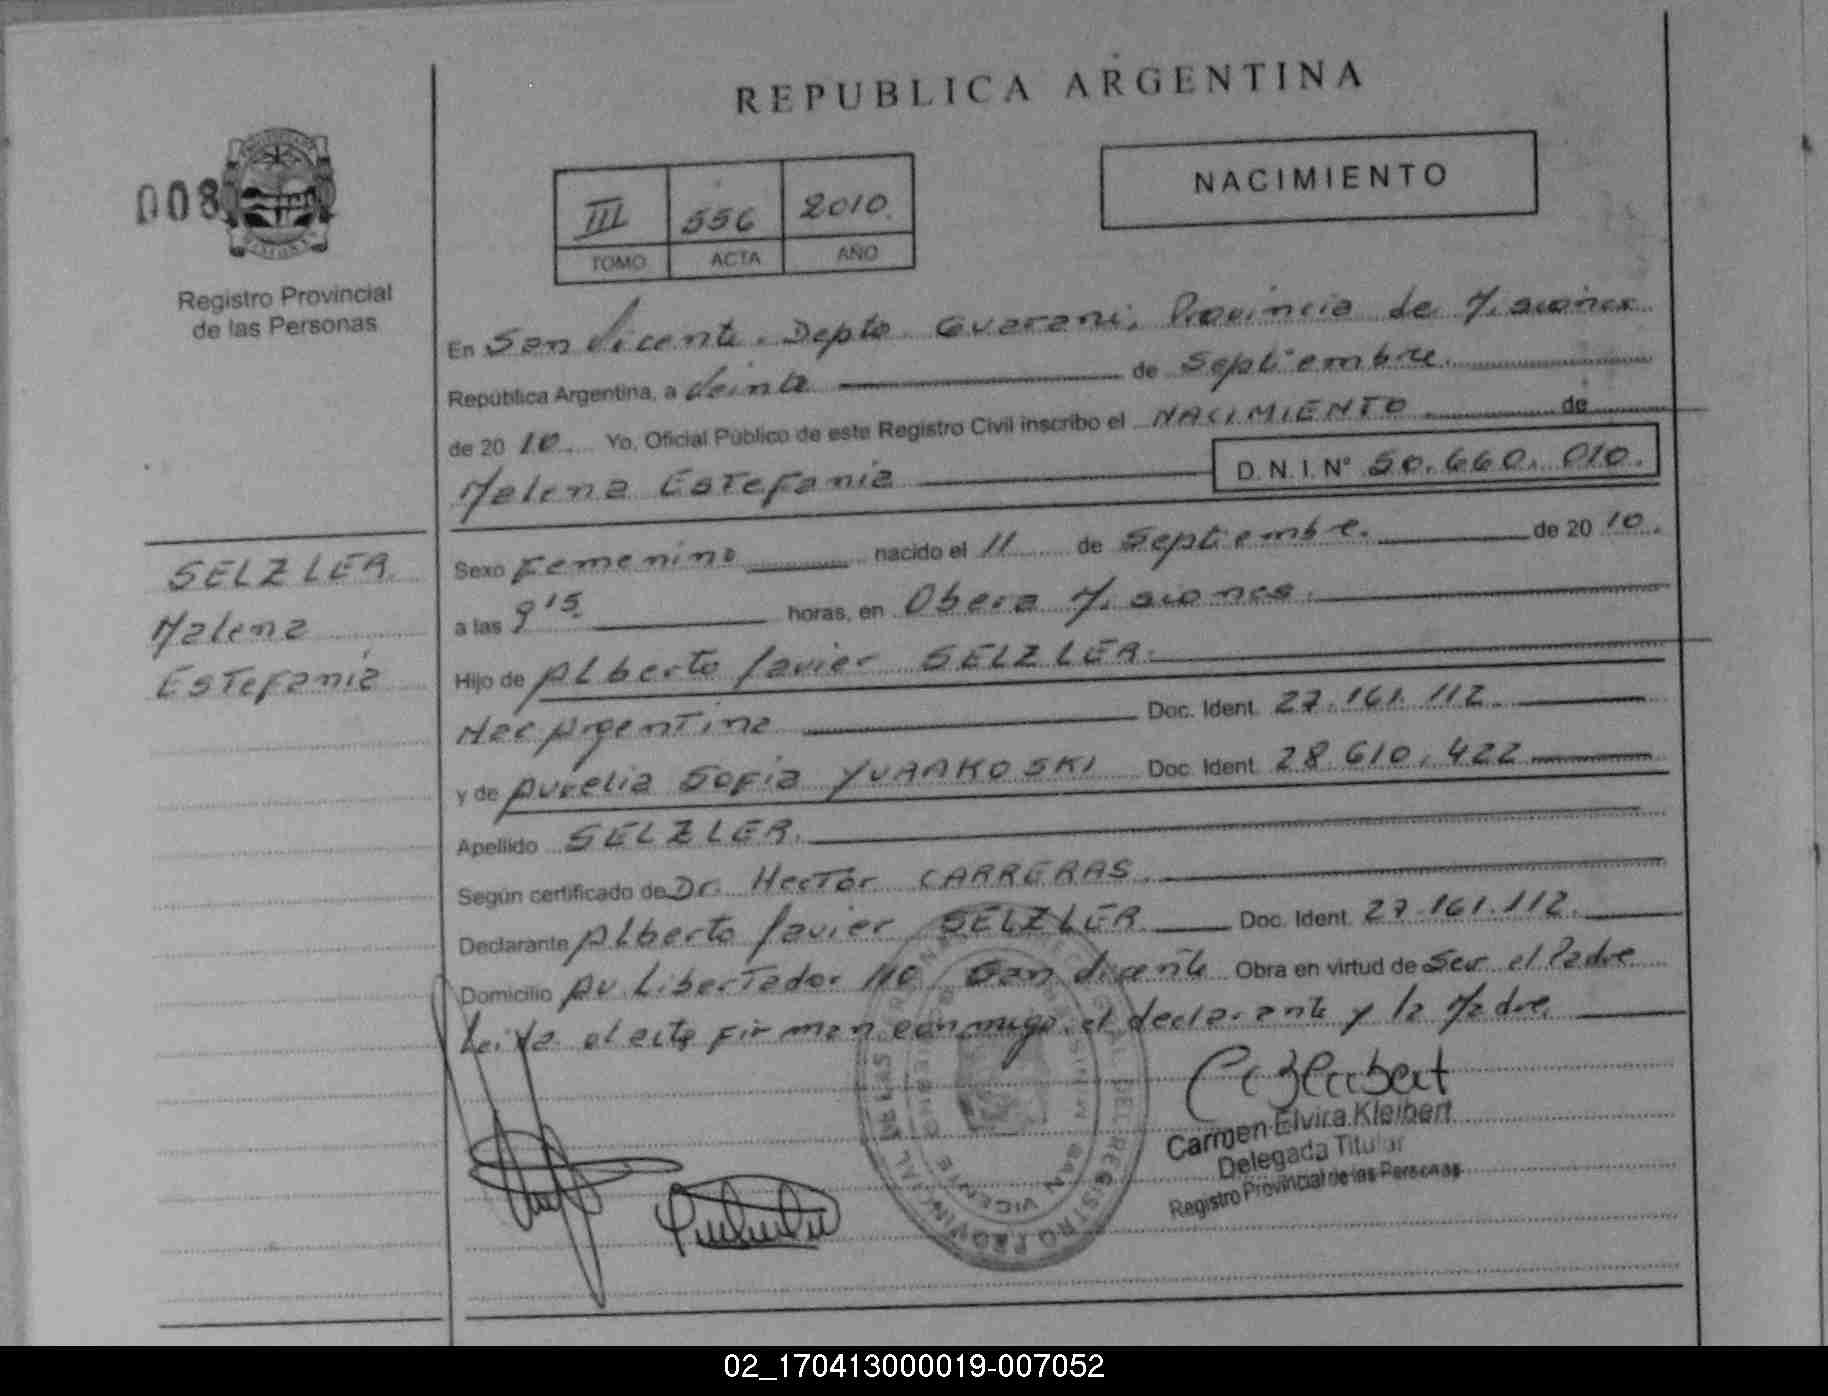 REPUBLICA ARGENTINA
NACIMIENTO
008
III 556 2010
TOMO ACTA AÑO
Registro Provincial
de las Personas
En San Vicente. Depto. Guarani, Provincia de Misiones
República Argentina, a Veinte de Septiembre.
de 2010 Yo, Oficial Público de este Registro Civil inscribo el NACIMIENTO de
Malena Estefania D. N. I. Nº 50.660.010.
SELZLER.
Malena
Estefania
Sexo Femenino nacido el 11 de Septiembre. de 2010.
a las 9 15. horas, en Obera Misiones.
Hijo de Alberto Javier SELZLER.
Nac Argentina Doc. Ident. 27.161.112.
y de Aurelia Sofia Doc. Ident. 28.610.422
Apellido SELZLER.
Según certificado de Dr. Hector CARRERAS.
Declarante Alberto Javier SELZLER Doc. Ident. 27.161.112.
Domicilio Av. Libertador San Vicente Obra en virtud de Ser el Padre
Leida el acta firman conmigo. el declarante y la Madre.
Carmen Elvira Kleibert
Delegada Titular
Registro Provincial de las Personas
SAN VICENTE
02_170413000019-007052